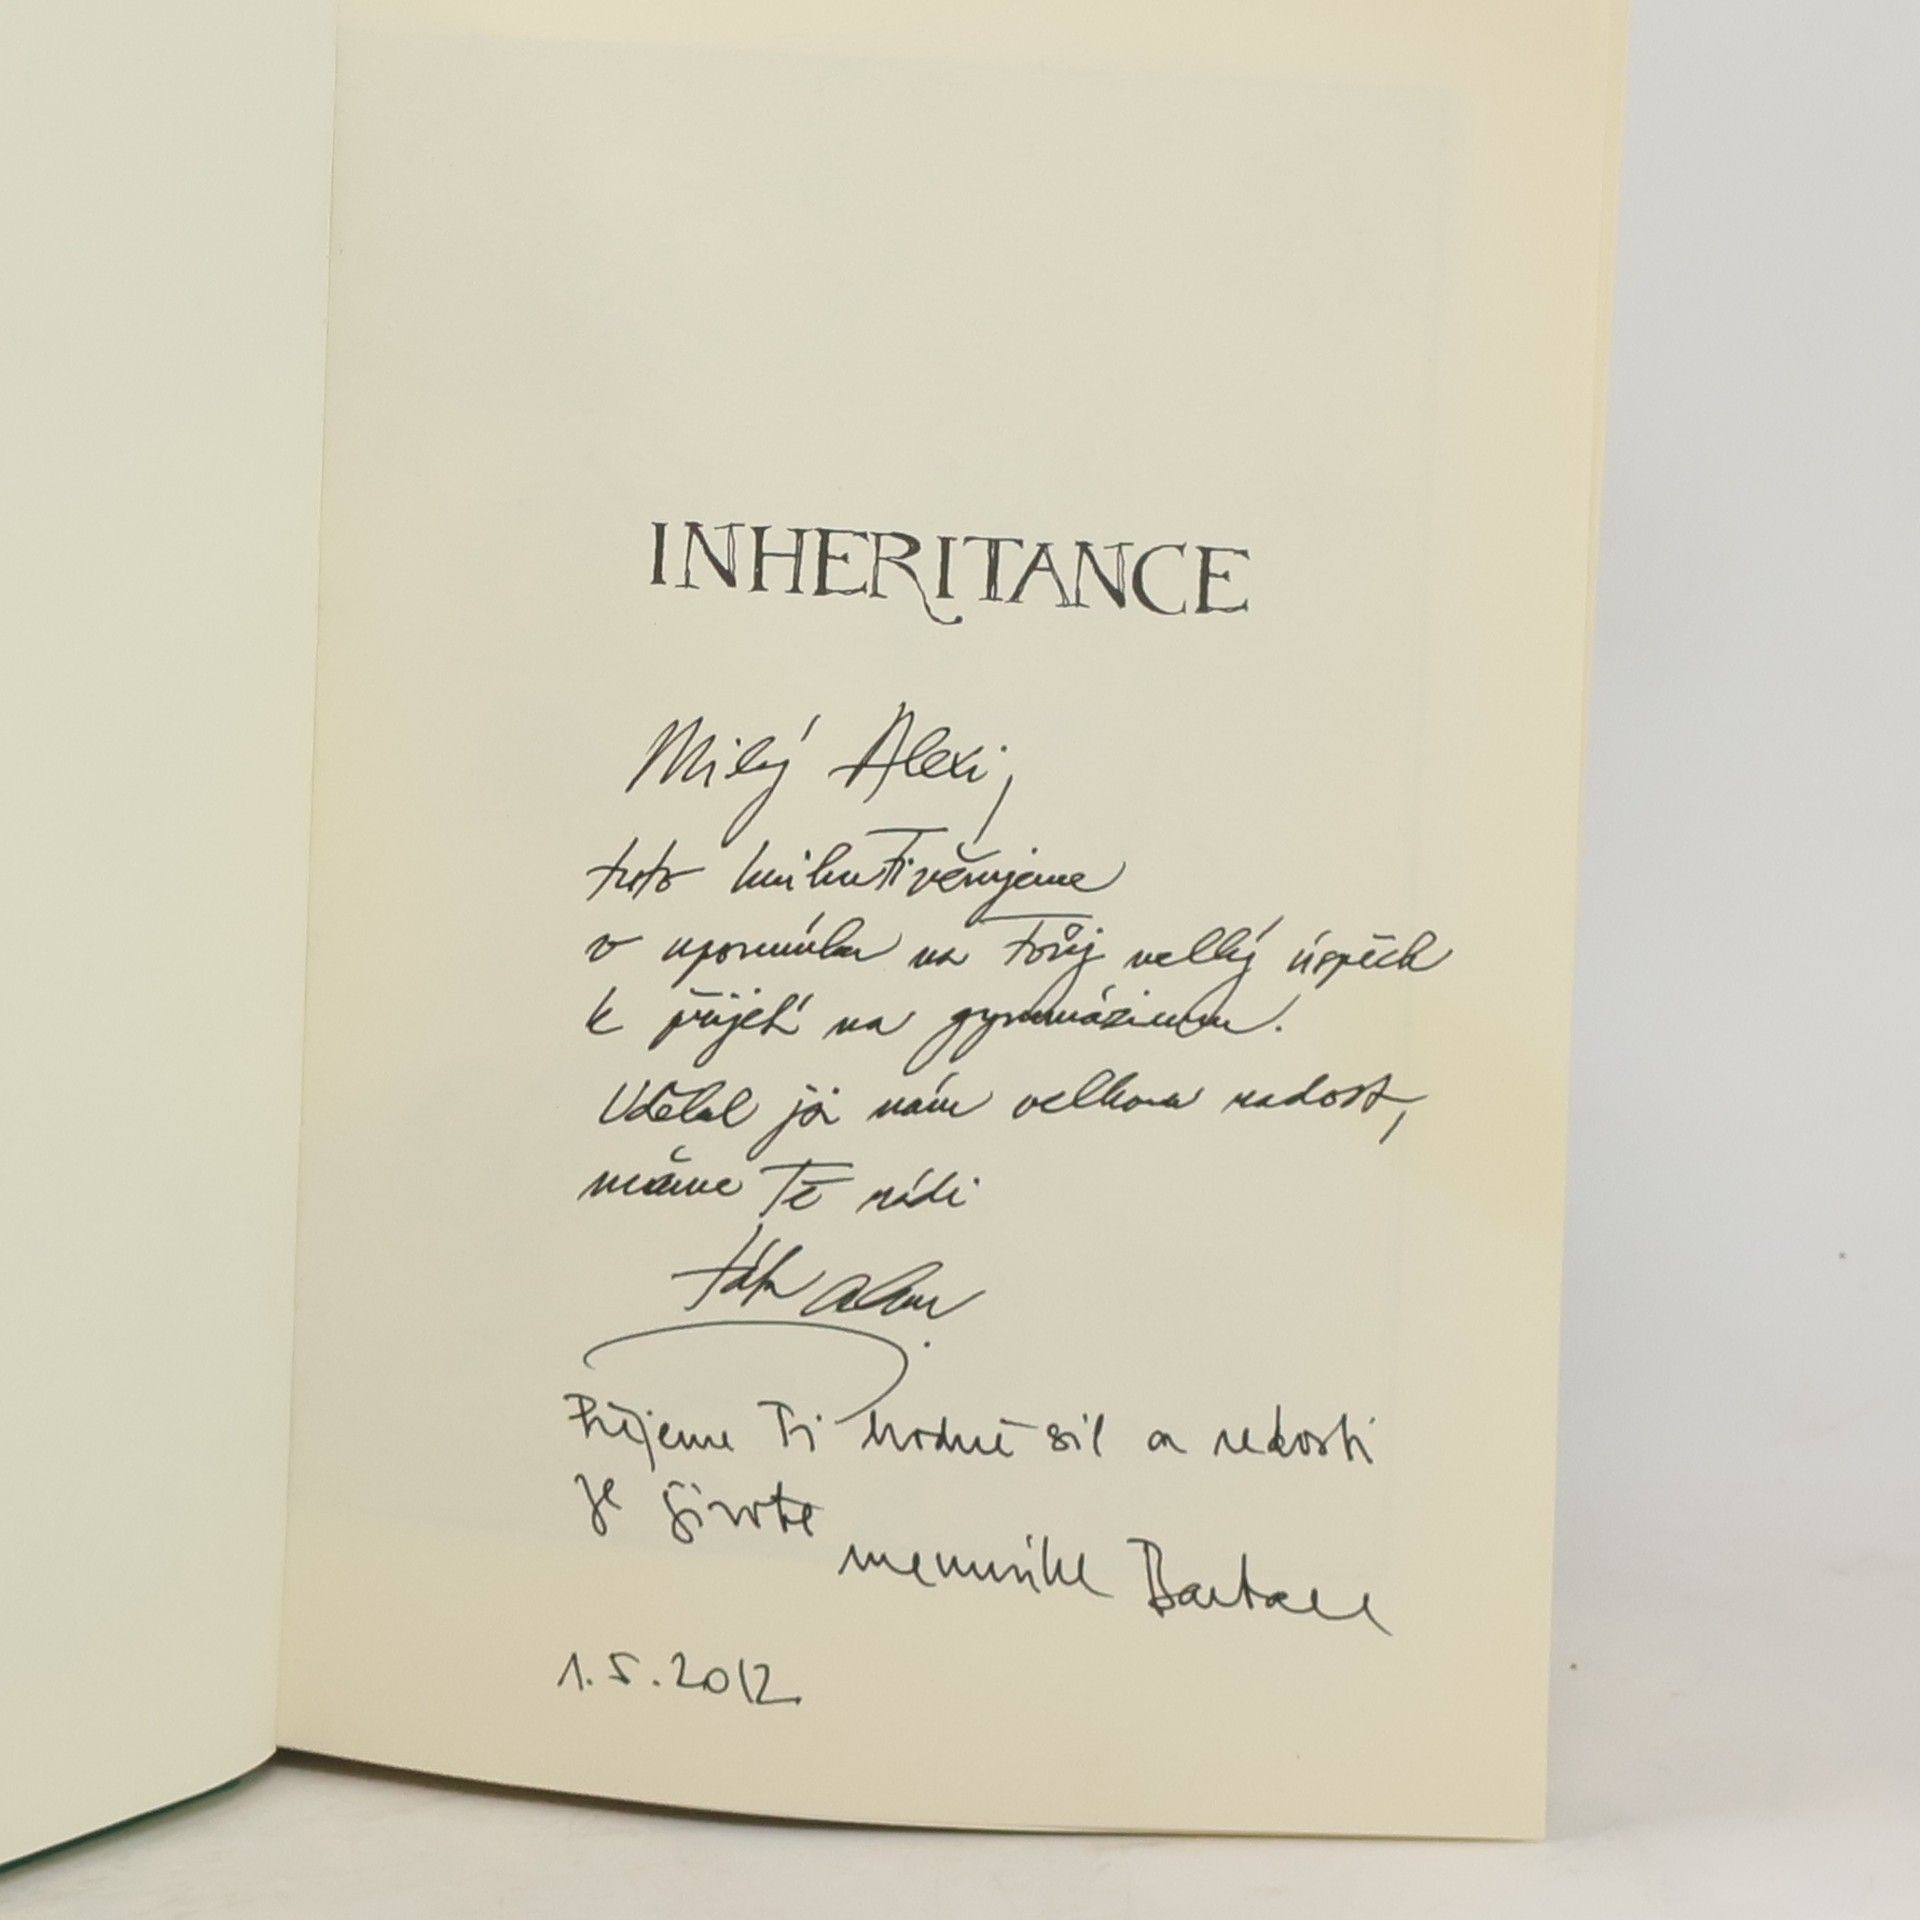 INHERITANCE
Milý Alexi,
tuto knihu Ti věnujeme
v upomínku na Tvůj velký úspěch
k přijetí na gymnázium.
Udělal jsi nám velkou radost,
máme Tě rádi
Přejeme Ti hodně sil a radosti
ze života
1.5.2012